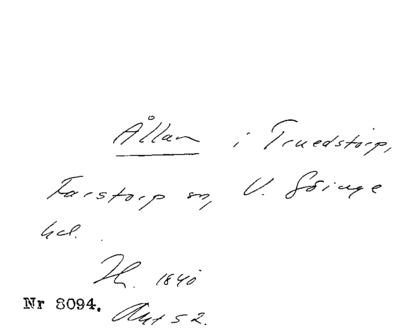 Ållan i Truedstorp,
Farstorp sn, V. Göinge
hd.
H. 1840
Nr 8094. Aut 52.